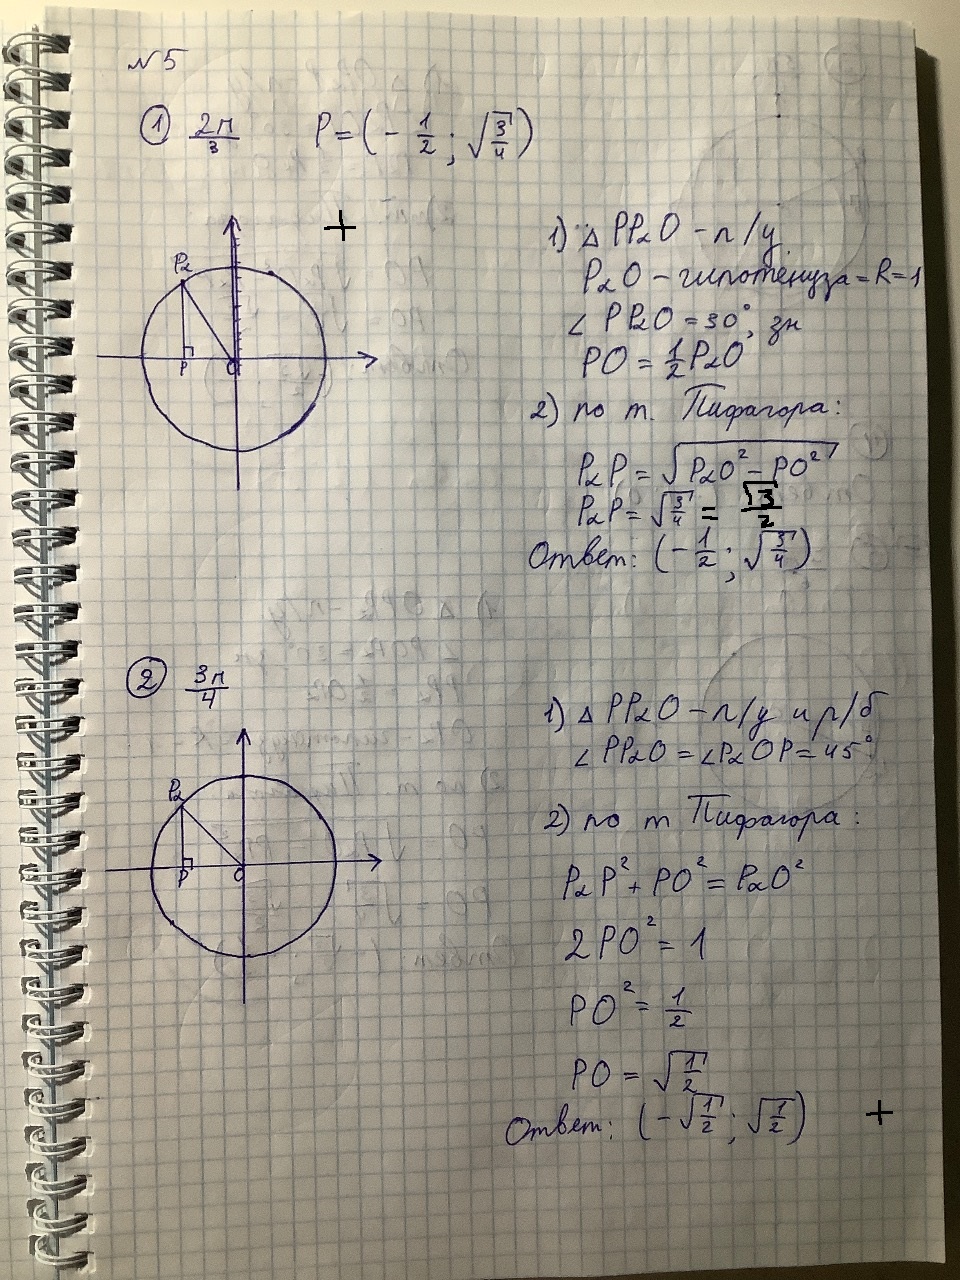 №5
① 2π/3 P = (-1/2; √3/4)
+
P₂
P
O
1) △ PP₂O - п/у
P₂O - гипотенуза = R = 1
∠ PP₂O = 30°, зн
PO = 1/2 P₂O
2) по т. Пифагора:
P₂P = √P₂O² - PO²
P₂P = √3/4 = √3/2
Ответ: (-1/2; √3/4)
② 3π/4
P₂
P
O
1) △ PP₂O - п/у и р/б
∠ PP₂O = ∠P₂OP = 45°
2) по т Пифагора:
P₂P² + PO² = P₂O²
2PO² = 1
PO² = 1/2
PO = √1/2
Ответ: (-√1/2; √1/2) +